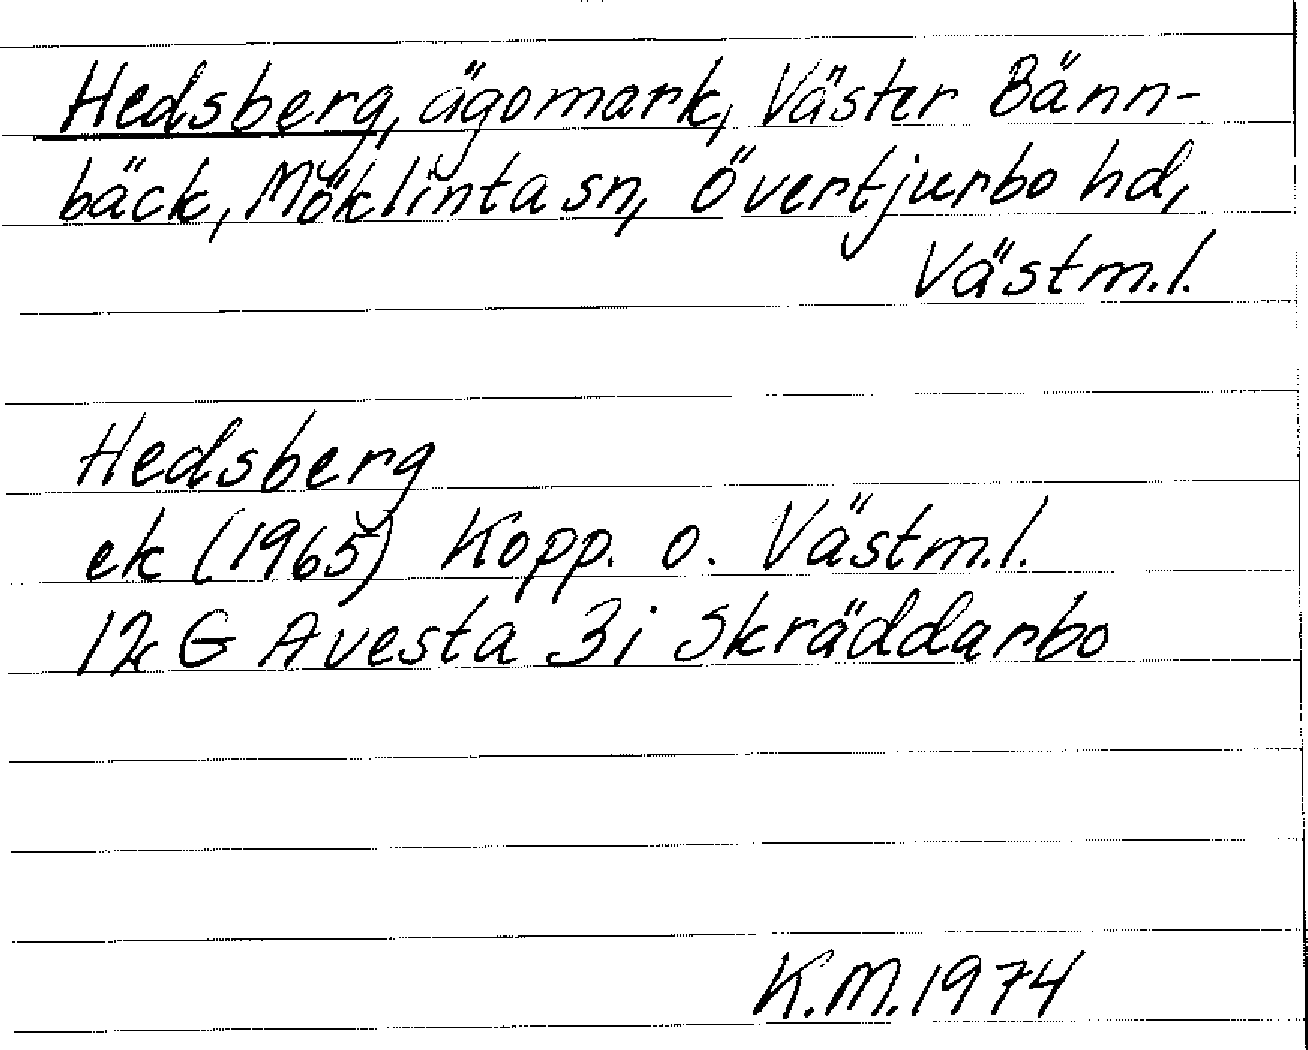 Hedsberg, ägomark, Väster Bänn-
bäck, Möklinta sn, Övertjurbo hd,
Västm.l.
Hedsberg
ek (1965) Kopp. o. Västm.l.
12 G Avesta 3i Skräddarbo
K.M. 1974